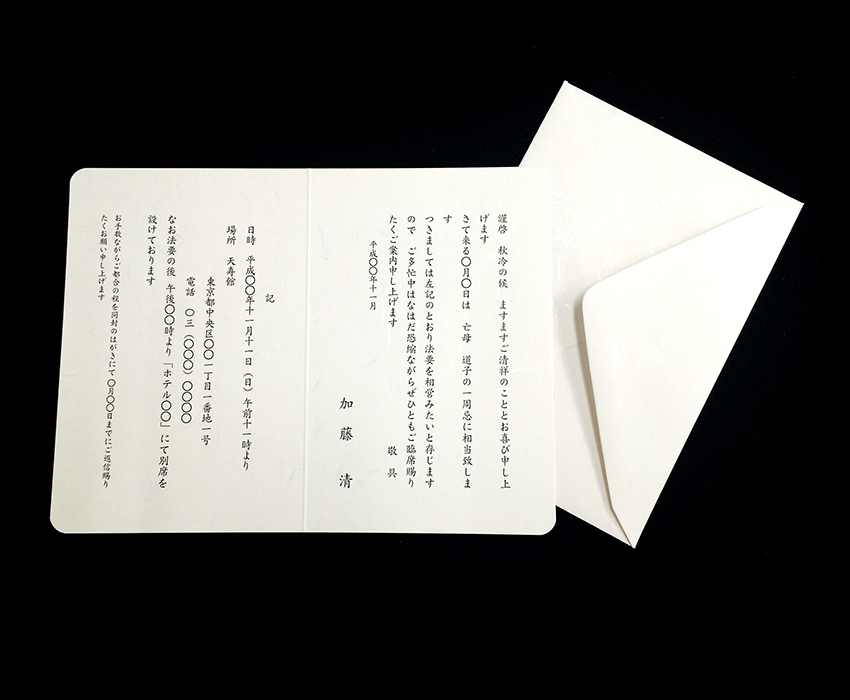 謹啓　秋冷の候　ますますご清祥のこととお喜び申し上
げます
さて来る〇月〇日は　亡母　道子の一周忌に相当致しま
す
つきましては左記のとおり法要を相営みたいと存じます
ので　ご多忙中はなはだ恐縮ながらぜひともご臨席賜り
たくご案内申し上げます
敬具
平成〇〇年十一月
加藤　清
記
日時　平成〇〇年十一月十一日（日）午前十一時より
場所　天寿館
東京都中央区〇〇一丁目一番地一号
電話　〇三（〇〇〇）〇〇〇〇
なお法要の後　午後〇〇時より「ホテル〇〇」にて別席を
設けております
お手数ながらご都合の程を同封のはがきにて　〇月〇〇日までにご返信賜り
たくお願い申し上げます